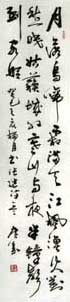 月落烏啼霜滿天江楓漁火對
愁眠姑蘇城外寒山寺夜半鐘聲
到客船